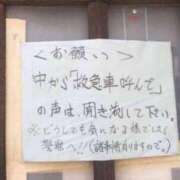 <お願い>
中から「救急車呼んで」
の声は、聞き流して下さい。
※どうしても気になる様でしたら
警察へ!!(諸事情ありますので。)